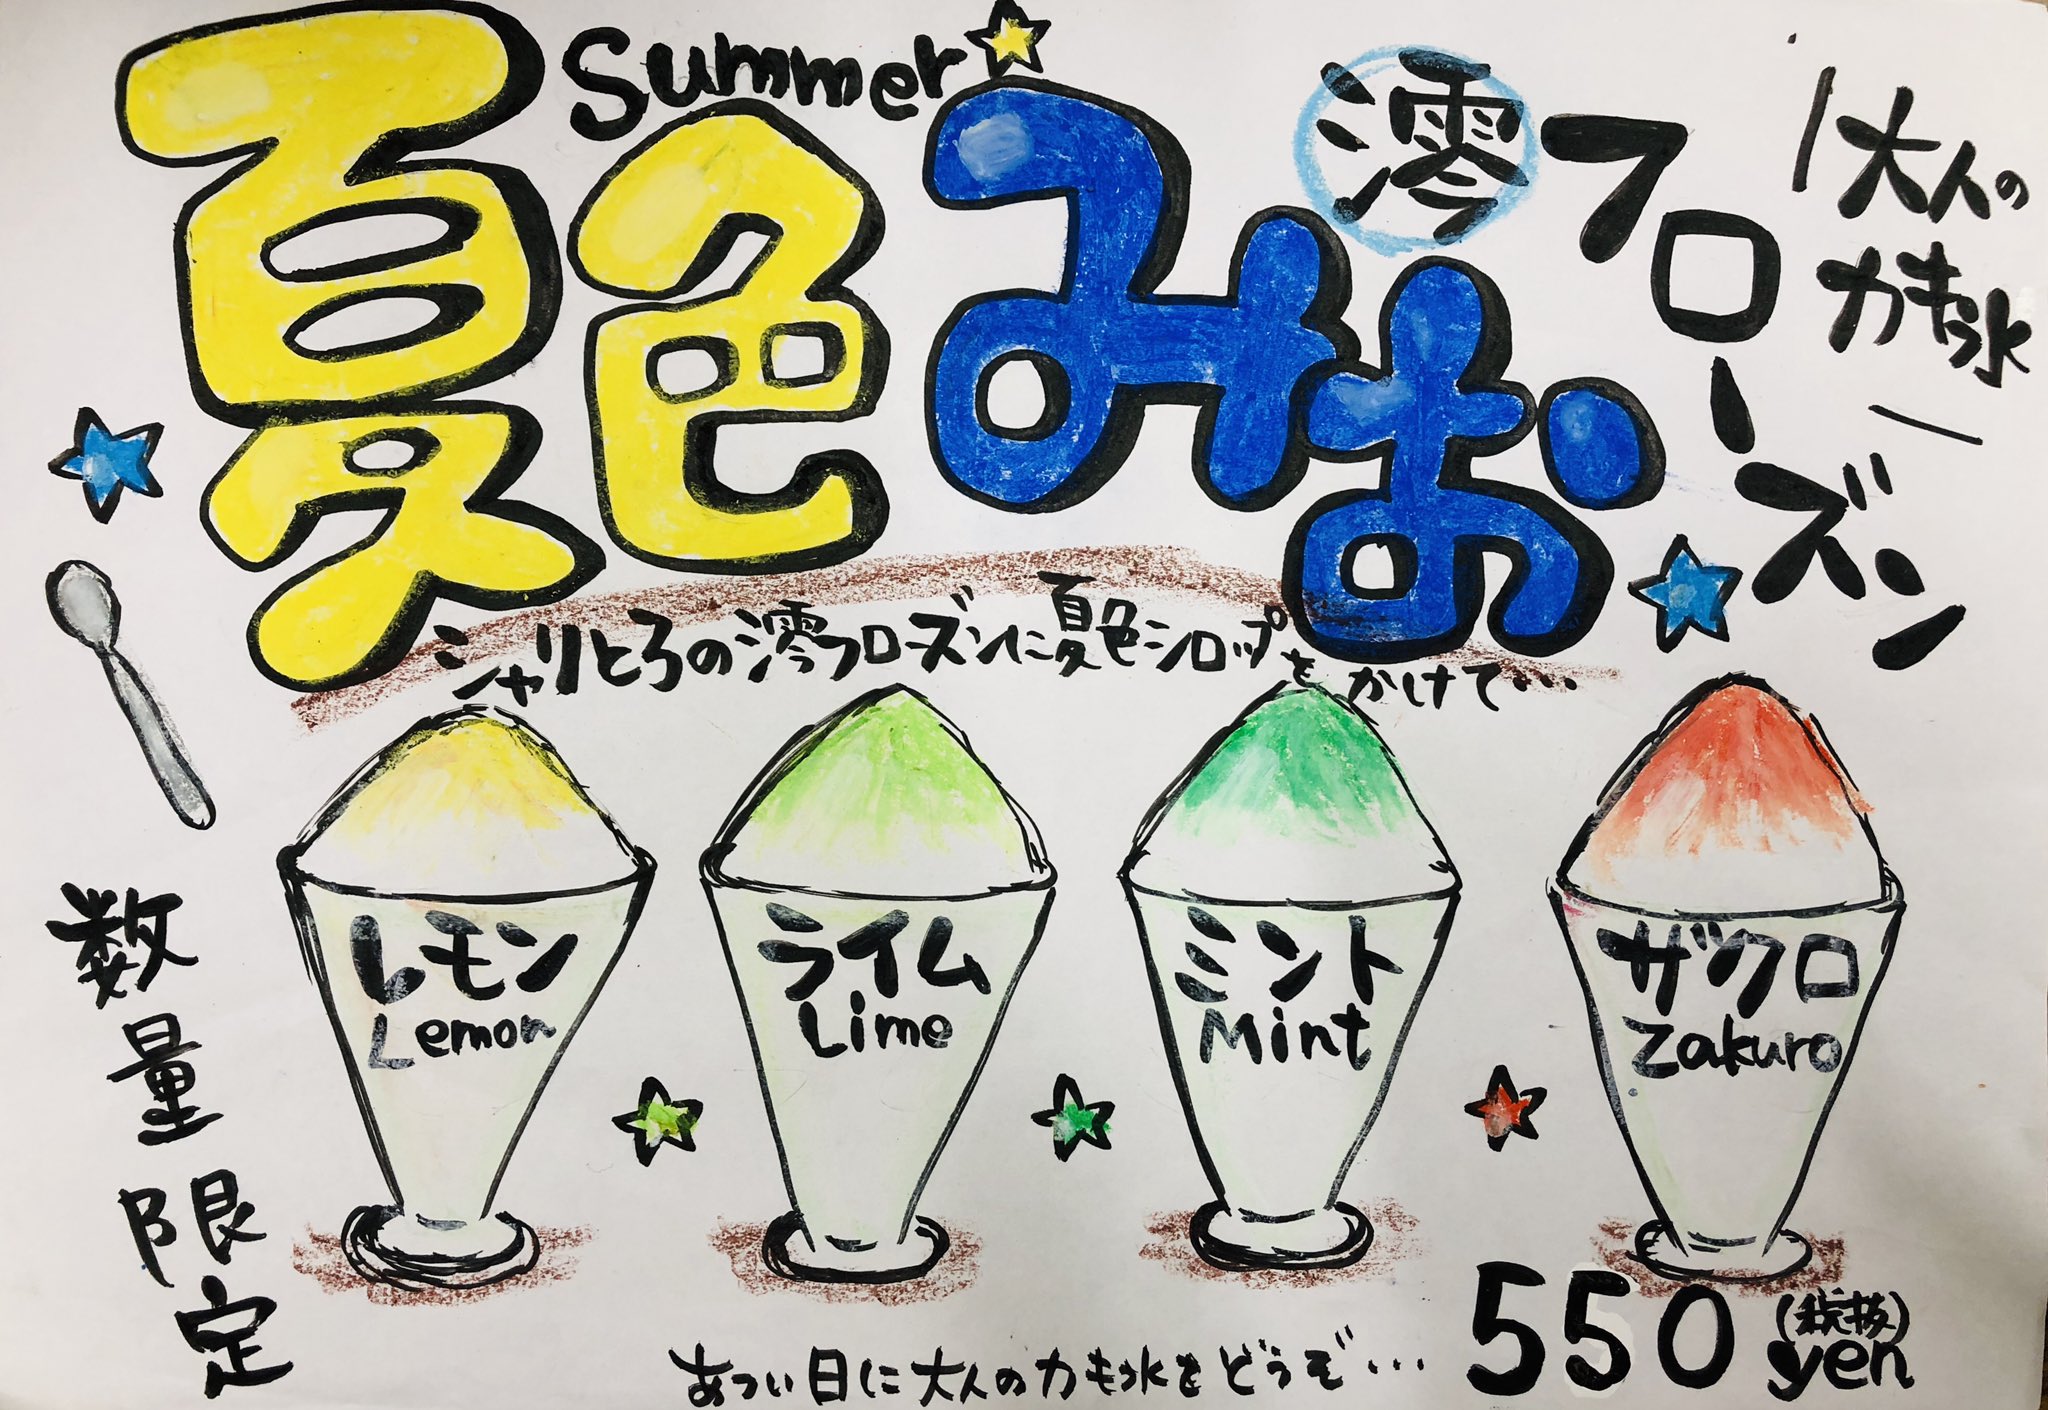 Summer
夏色みお
澪フローズン
大人の
かき氷
シャリとろの澪フローズンに夏色シロップをかけて…
レモン
Lemon
ライム
Lime
ミント
Mint
ザクロ
Zakuro
数量限定
あつい日に大人のかき氷をどうぞ…
550yen
(税抜)